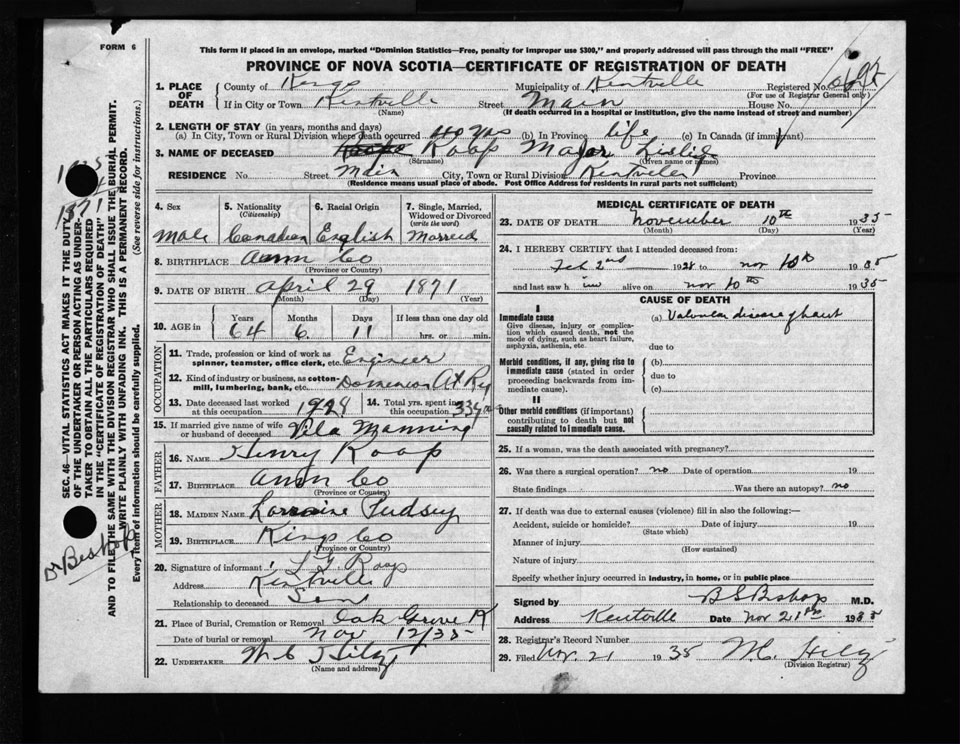 FORM 6
This form if placed in an envelope, marked "Dominion Statistics—Free, penalty for improper use $300," and properly addressed will pass through the mail "FREE"
PROVINCE OF NOVA SCOTIA—CERTIFICATE OF REGISTRATION OF DEATH
1. PLACE OF DEATH
County of Kings Municipality of Kentville Registered No.
(For use of Registrar General only)
If in City or Town Kentville Street Main House No.
(If death occurred in a hospital or institution, give the name instead of street and number)
2. LENGTH OF STAY (in years, months and days)
(a) In City, Town or Rural Division where death occurred 40 yrs (b) In Province life (c) In Canada (if immigrant)
3. NAME OF DECEASED Roop Major Leslie
(Surname) (Given name or names)
RESIDENCE No. Street Main City, Town or Rural Division Kentville Province
(Residence means usual place of abode. Post Office Address for residents in rural parts not sufficient)
4. Sex Male
5. Nationality (Citizenship) Canadian
6. Racial Origin English
7. Single, Married, Widowed or Divorced (write the word) Married
8. BIRTHPLACE Ann Co
(Province or Country)
9. DATE OF BIRTH April 29 1871
(Month) (Day) (Year)
10. AGE in Years Months Days If less than one day old
64 6 11 hrs. or min.
OCCUPATION
11. Trade, profession or kind of work as spinner, teamster, office clerk, etc. Engineer
12. Kind of industry or business, as cotton-mill, lumbering, bank, etc. Dominion At Ry
13. Date deceased last worked at this occupation 1928
14. Total yrs. spent in this occupation
15. If married give name of wife or husband of deceased Manning
FATHER
16. NAME Henry Roop
17. BIRTHPLACE Ann Co
(Province or Country)
MOTHER
18. MAIDEN NAME Lorraine
19. BIRTHPLACE Kings Co
(Province or Country)
20. Signature of informant Roop
Address Kentville
Relationship to deceased Son
21. Place of Burial, Cremation or Removal Oak Grove
Date of burial or removal Nov 12/35
22. UNDERTAKER
(Name and address)
MEDICAL CERTIFICATE OF DEATH
23. DATE OF DEATH November 10th 1935
(Month) (Day) (Year)
24. I HEREBY CERTIFY that I attended deceased from:
Feb 2nd 1928 to Nov 10th 1935
and last saw him alive on Nov 10th 1935
CAUSE OF DEATH
I
Immediate cause
Give disease, injury or complication which caused death, not the mode of dying, such as heart failure, asphyxia, asthenia, etc.
(a) Valvular disease of heart
due to
Morbid conditions, if any, giving rise to immediate cause (stated in order proceeding backwards from immediate cause).
(b)
due to
(c)
II
Other morbid conditions (if important) contributing to death but not causally related to immediate cause.
25. If a woman, was the death associated with pregnancy?
26. Was there a surgical operation? no Date of operation 19
State findings Was there an autopsy? no
27. If death was due to external causes (violence) fill in also the following:—
Accident, suicide or homicide? Date of injury 19
(State which)
Manner of injury
(How sustained)
Nature of injury
Specify whether injury occurred in industry, in home, or in public place
Signed by B S Bishop M.D.
Address Kentville Date Nov 21st 1935
28. Registrar's Record Number
29. Filed Nov. 21 1935
(Division Registrar)
SEC. 46—VITAL STATISTICS ACT MAKES IT THE DUTY
OF THE UNDERTAKER OR PERSON ACTING AS UNDER-
TAKER TO OBTAIN ALL THE PARTICULARS REQUIRED
IN THE "CERTIFICATE OF REGISTRATION OF DEATH"
AND TO FILE THE SAME WITH THE DIVISION REGISTRAR WHO SHALL ISSUE THE BURIAL PERMIT.
WRITE PLAINLY WITH UNFADING INK. THIS IS A PERMANENT RECORD.
Every item of information should be carefully supplied. (See reverse side for instructions.)